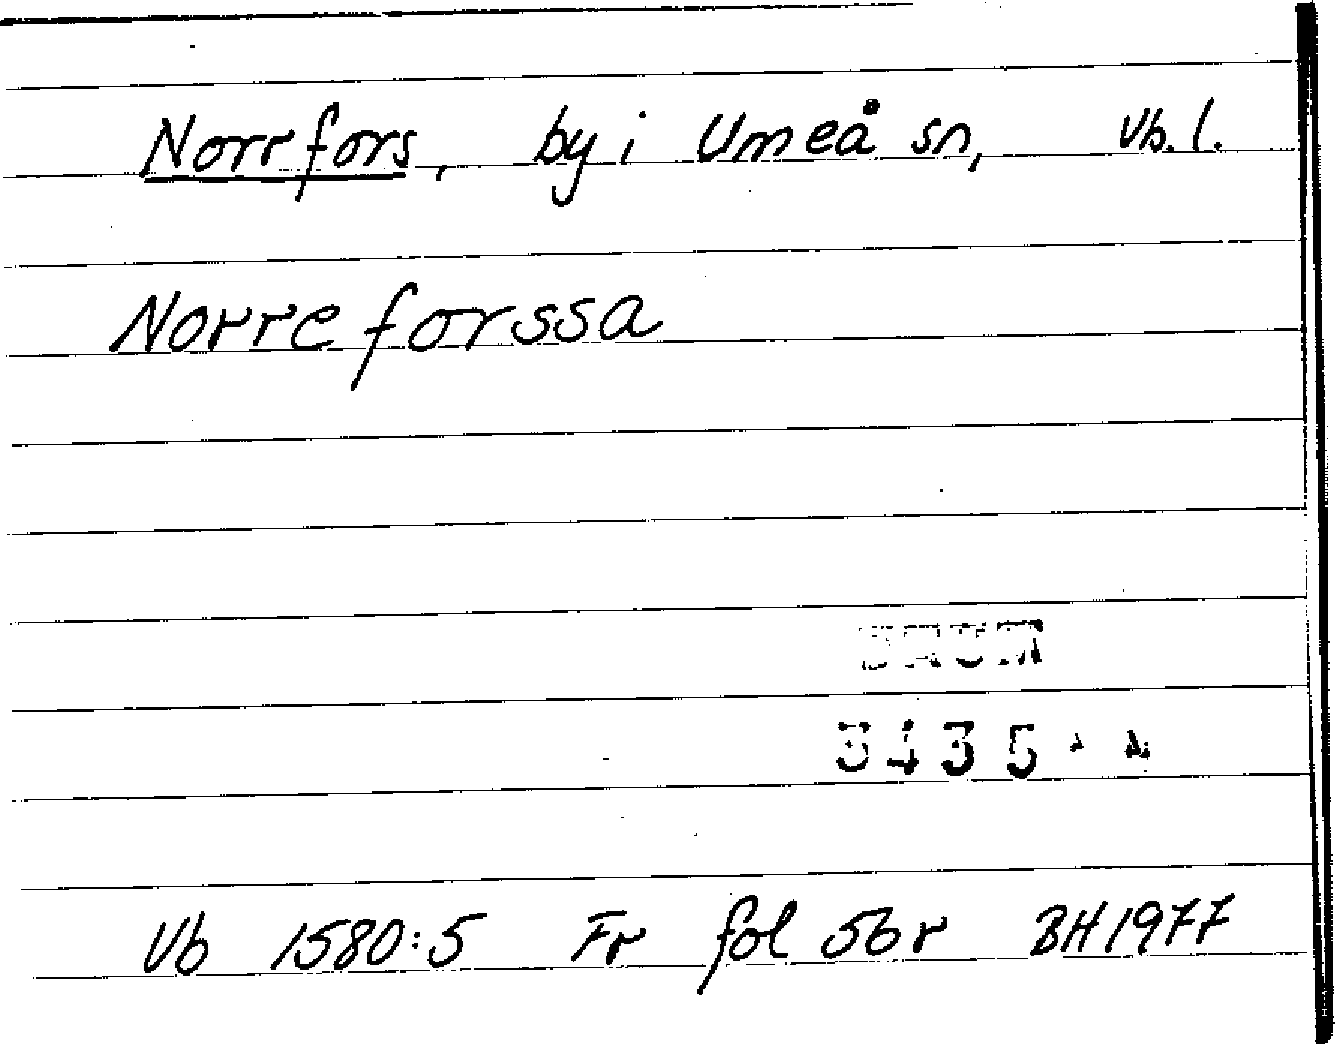 Norrfors, by i Umeå sn, Vb. l.
Norreforssa
DAUM
3435
Vb 1580:5 Fr fol 56r BH 1977